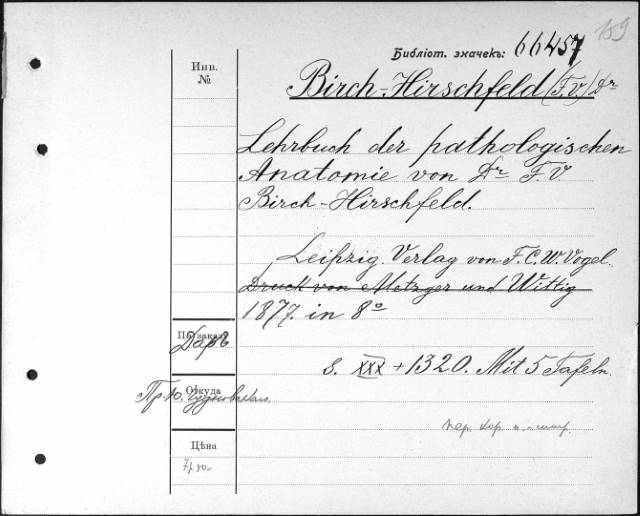 159
Библіот. значекъ: 66457
Инв.
№
Birch-Hirschfeld (F.V.) Dr
Lehrbuch der pathologischen
Anatomie von Dr F.V.
Birch-Hirschfeld.
Leipzig. Verlag von F.C.W. Vogel.
Druck von Metzger und Wittig
1877. in 8°
По заказу
Даръ
S. XXX + 1320. Mit 5 Tafeln.
Откуда
Пр. Ю.
пер. кор.
Цѣна